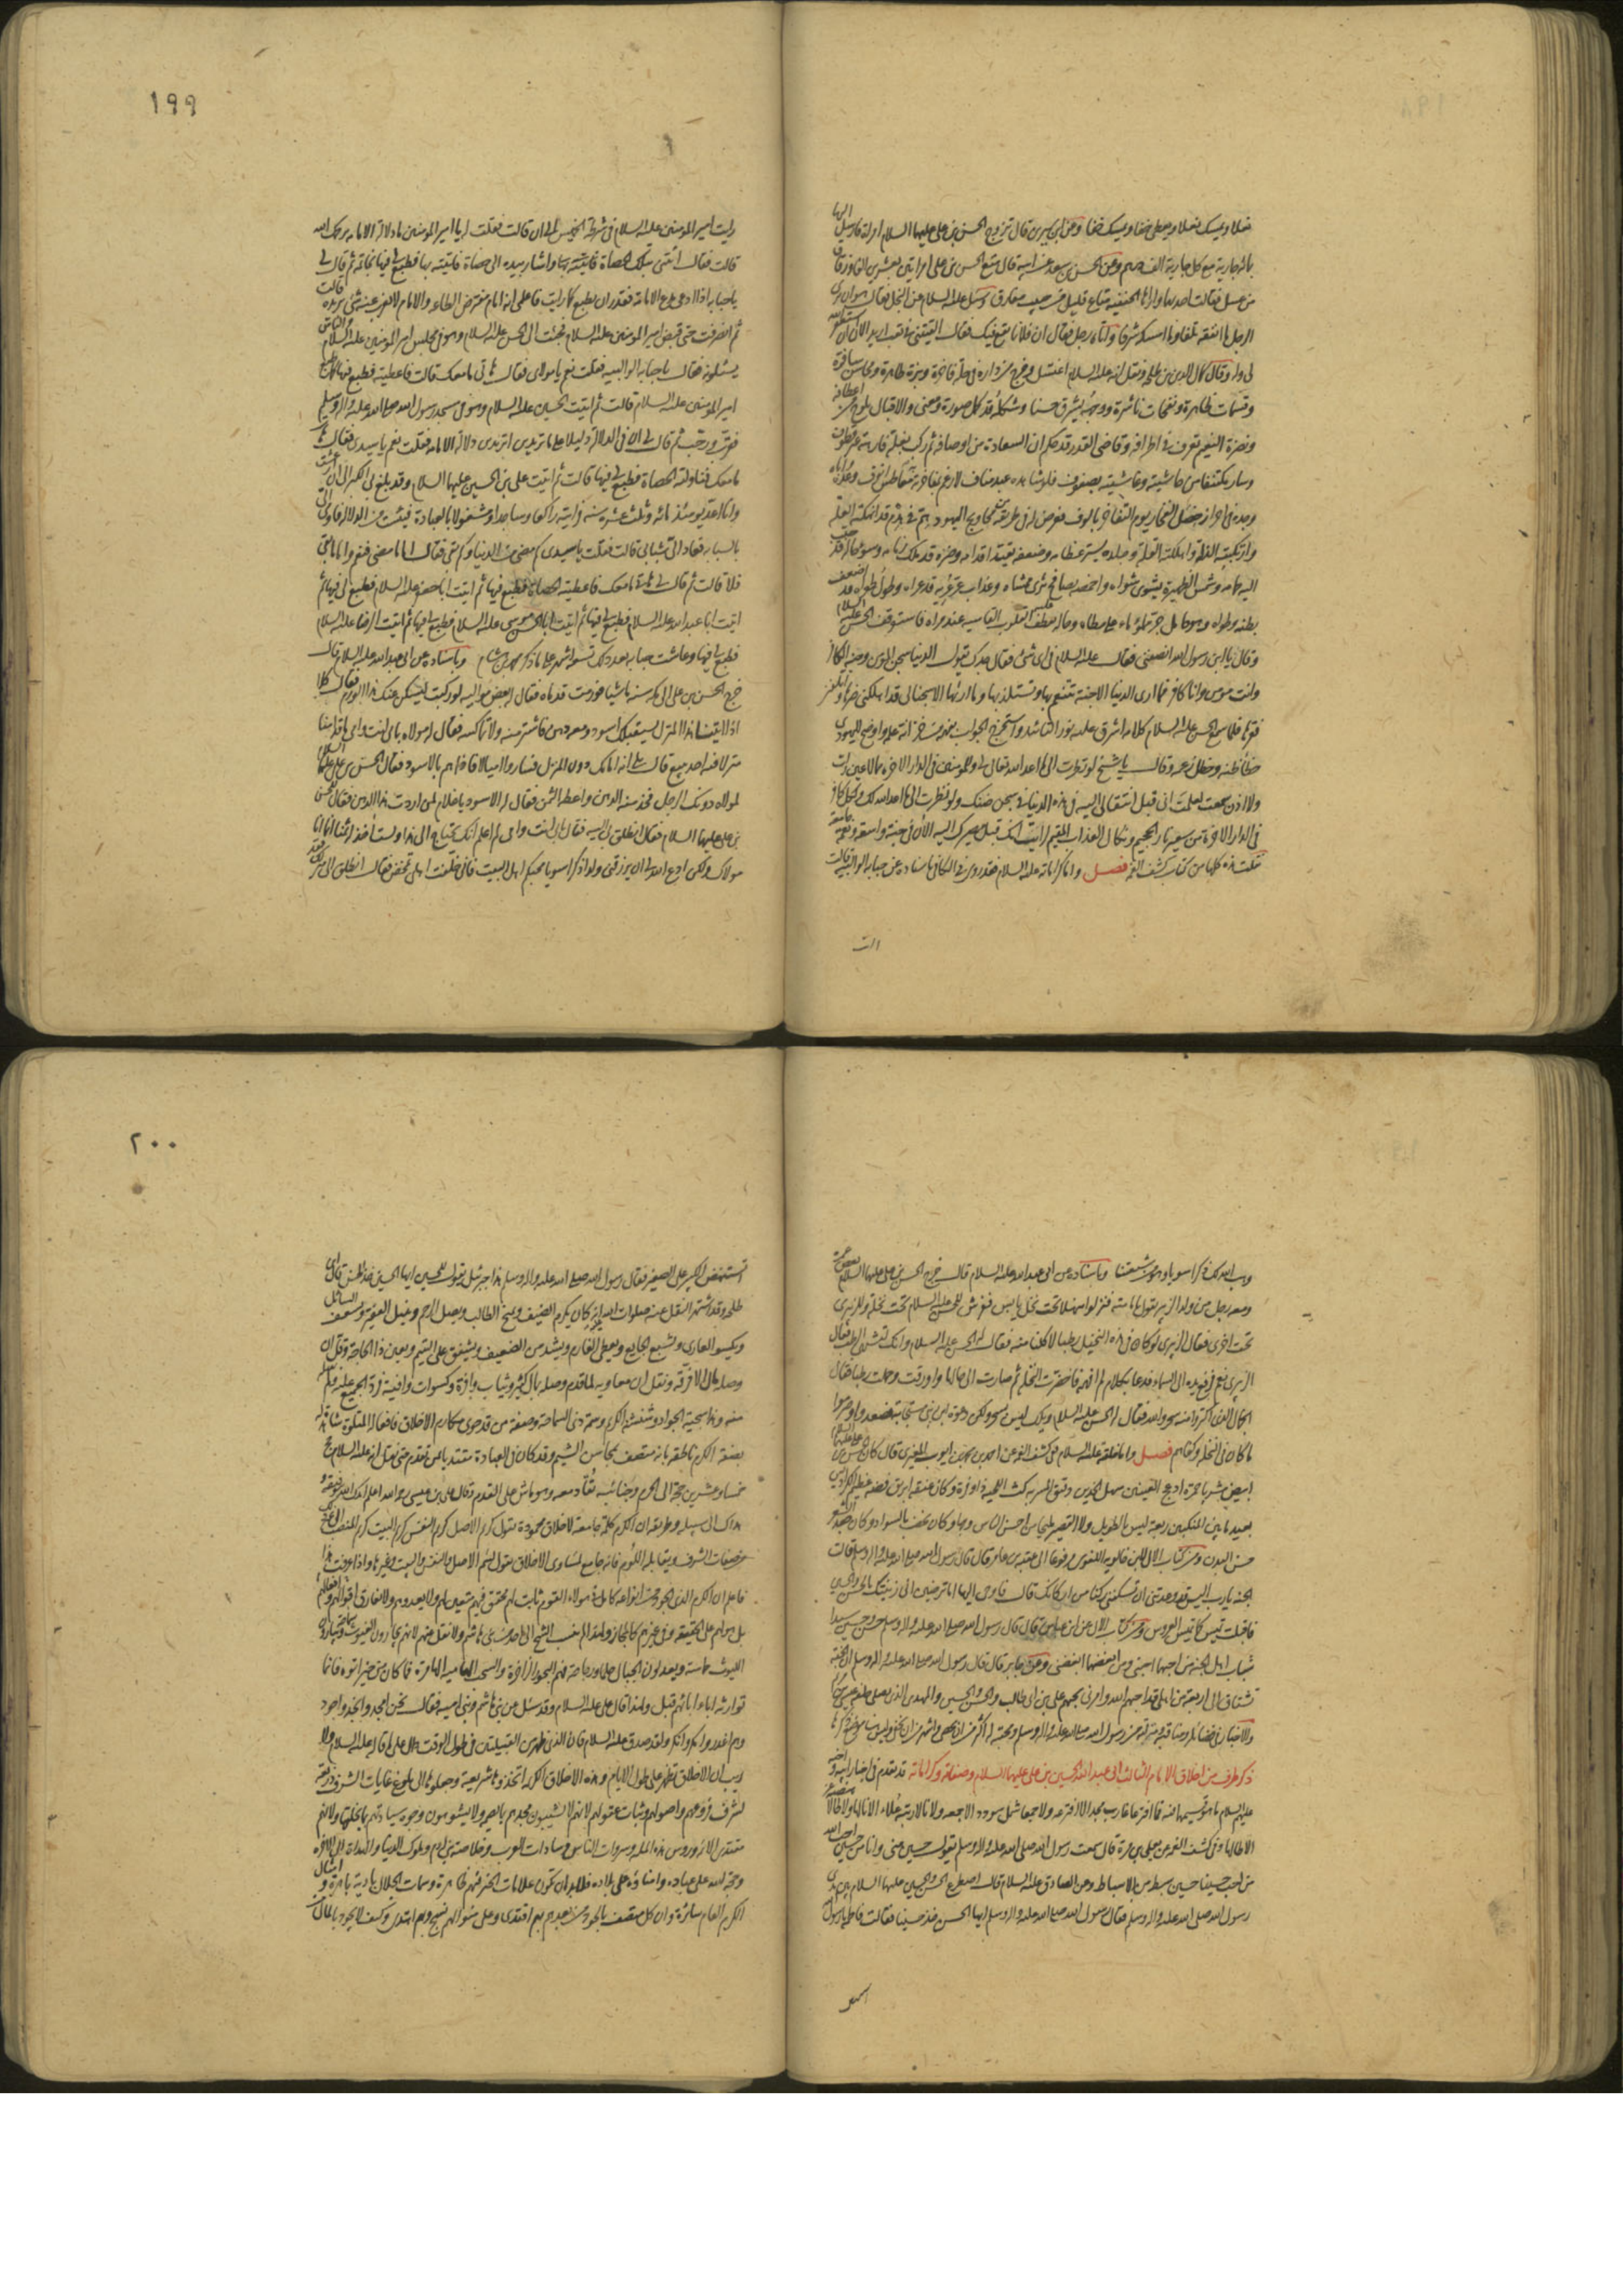 نعلا ويمسك نعلا ويعطى خفا ويمسك خفا وعن ابن سيرين قال تزوج الحسن بن على عليهما السلام امراة فارسل اليها
بمائة جارية مع كل جارية الف درهم وعن الحسن بن سعد عن ابيه قال متع الحسن بن على امراتين بعشرين الفا وزقاق
من عسل فقالت احديهما واراها الحنفية متاع قليل من حبيب مفارق وسئل عليه السلام عن البخل فقال هو ان يرى
الرجل ما انفقه تلفا وما امسكه شرفا واتاه رجل فقال ان فلانا يقع فيك فقال القيتنى فى تعب اريد الان ان استغفر الله
لى وله وقال كمال الدين بن طلحة ونقل انه عليه السلام اغتسل وخرج من داره فى حلة فاخرة وبزة طاهرة ومحاسن سافرة
وقسمات ظاهرة ونفحات ناشرة ووجهه يشرق حسنا وشكله قد كمل صورة ومعنى والاقبال يلوح من اعطافه
ونضرة النعيم تعرف فى اطرافه وقاضى القدر قد حكم ان السعادة من اوصافه ثم ركب بغلة فارهة غير قطوف
وسار مكتنفا من حاشيته وغاشيته بصفوف فلو شاهده عبد مناف لارغم بمفاخرته معاطس انوف وعده واباه
وجده فى احراز خصل الفخار يوم التفاخر بالوف فعرض له فى طريقه من محاويج اليهود هم فى هدم قد انهكته العلة
وارتكبته الذلة واهلكته القلة وجلده يستر عظامه وضعفه يقيد اقدامه وضره قد ملك زمامه وسوء حاله قد حبب
اليه حمامه وشمس الظهيرة يشوى شواه واخمصه يصافح ثرى ممشاه وعذاب عر عريه قد عراه وطول طواه قد اضعف
بطنه وطواه وهو حامل جر مملوء ماء على مطاه وحاله يعطف عليه القلوب القاسية عند مراه فاستوقف الحسن عليه السلام
وقال يا ابن رسول الله انصفنى فقال عليه السلام فى اى شئ فقال جدك يقول الدنيا سجن المؤمن وجنة الكافر
وانت مؤمن وانا كافر فما ارى الدنيا الا جنة تتنعم بها وتستلذ بها وما اريها الا سجنا لى قد اهلكنى ضرها واتلفنى
فقرها فلما سمع الحسن عليه السلام كلامه اشرق عليه نور التائيد واستخرج الجواب بفهمه من خزانة علمه واوضح لليهودى
خطا ظنه وخطل زعمه وقال يا شيخ لو نظرت الى ما اعد الله تعالى لى وللمؤمنين فى الدار الاخرة مما لا عين رات
ولا اذن سمعت لعلمت انى قبل انتقالى اليه فى هذه الدنيا فى سجن ضنك ولو نظرت الى ما اعد الله لك ولكل كافر
فى الدار الاخرة من سعير نار الجحيم ونكال العذاب المقيم لرايت انك قبل مصيرك اليه الان فى جنة واسعة ونعمة جامعة
نقلت هذه كلها من كتاب كشف الغمة فصل واما كراماته عليه السلام فقد روى فى الكافى باسناده عن حبابة الوالبية قالت
رايت
١٩٩
رايت امير المؤمنين عليه السلام فى شرطة الخميس الى ان قالت فقلت له يا امير المؤمنين ما دلالة الامامة يرحمك الله
قالت فقال ائتنى بتلك الحصاة فاتيته بها واشار بيده الى حصاة فاتيته بها فطبع لى فيها بخاتمه ثم قال لى
يا حبابة اذا ادعى مدع الامامة فقدر ان يطبع كما رايت فاعلمى انه امام مفترض الطاعة والامام لا يعزب عنه شئ يريده قالت
ثم انصرفت حتى قبض امير المؤمنين عليه السلام فجئت الى الحسن عليه السلام وهو فى مجلس امير المؤمنين عليه السلام والناس
يسئلونه فقال يا حبابة الوالبية فقلت نعم يا مولاى فقال هاتى ما معك قالت فاعطيته فطبع فيها كما طبع
امير المؤمنين عليه السلام قالت ثم اتيت الحسين عليه السلام وهو فى مسجد رسول الله صلى الله عليه واله وسلم
فقرب ورحب ثم قال لى ان فى الدلالة دليلا على ما تريدين افتريدين دلالة الامامة فقلت نعم يا سيدى فقال هاتى
ما معك فناولته الحصاة فطبع لى فيها قالت ثم اتيت على بن الحسين عليهما السلام وقد بلغ بى الكبر الى ان ارعشت
وانا اعد يومئذ مائة وثلث عشرة سنة فرايته راكعا وساجدا ومشغولا بالعبادة فيئست من الدلالة فاومى الى
بالسبابة فعاد الى شبابى قالت فقلت يا سيدى كم مضى من الدنيا وكم بقى فقال اما ما مضى فنعم واما ما بقى
فلا قالت ثم قال لى هاتى ما معك فاعطيته الحصاة فطبع فيها ثم اتيت ابا جعفر عليه السلام فطبع لى فيها ثم
اتيت ابا عبد الله عليه السلام فطبع لى فيها ثم اتيت ابا الحسن موسى عليه السلام فطبع لى فيها ثم اتيت الرضا عليه السلام
فطبع لى فيها وعاشت حبابة بعد ذلك تسعة اشهر على ما ذكر محمد بن هشام وباسناده عن ابى عبد الله عليه السلام قال
خرج الحسن بن على الى مكة سنة ماشيا فورمت قدماه فقال له بعض مواليه لو ركبت ليسكن عنك هذا الورم فقال كلا
اذا اتينا هذا المنزل يستقبلك اسود ومعه دهن فاشتر منه ولا تماكسه فقال له مولاه بابى انت وامى ما قدامنا
منزل فيه احد يبيع قال بلى انه امامك دون المنزل فساروا اميالا فاذا هم بالاسود فقال الحسن بن على عليهما السلام
لمولاه دونك الرجل فخذ منه الدهن واعطه الثمن فقال له الاسود يا غلام لمن اردت هذا الدهن فقال للحسن
بن على عليهما السلام فقال انطلق بى اليه فقال بابى انت وامى لم اعلم انك تحتاج الى هذا ولست اخذ له ثمنا انما انا
مولاك ولكن ادع الله لى ان يرزقنى ولدا ذكرا سويا يحبكم اهل البيت فانى خلفت اهلى تمخض فقال انطلق الى منزلك فقد
وهب الله لك ذكرا سويا وهو من شيعتنا وباسناده عن ابى عبد الله عليه السلام قال خرج الحسن بن على عليهما السلام بعض عمره
ومعه رجل من ولد الزبير يقول بامامته فنزلوا منهلا تحت نخل يابس ففرش للحسن عليه السلام تحت نخلة وللزبيرى
تحت اخرى فقال الزبيرى لو كان فى هذه النخيل رطبا لاكلنا منه فقال له الحسن عليه السلام وانك تشتهى الرطب فقال
الزبيرى نعم فرفع يده الى السماء فدعا بكلام لم افهمه فاخضرت النخلة ثم صارت الى حالها واورقت وحملت رطبا فقال
الجمال الذى اكتروا منه سحر والله فقال له الحسن عليه السلام ويلك ليس بسحر ولكن دعوة ابن نبى مستجابة فصعدوا وصرموا
ما كان فى النخلة وكفاهم فصل واما خلقه عليه السلام ففى كشف الغمة عن احمد بن محمد بن ايوب المغيرى قال كان الحسن بن على عليهما السلام
ابيض مشربا حمرة ادعج العينين سهل الخدين دقيق المسربة كث اللحية ذا وفرة وكان عنقه ابريق فضة عظيم الكراديس
بعيد ما بين المنكبين ربعة ليس بالطويل ولا القصير مليحا من احسن الناس وجها وكان يخضب بالسواد وكان جعد الشعر
حسن البدن ومن كتاب الال لابن خالويه اللغوى مرفوعا الى عقبة بن عامر قال قال رسول الله صلى الله عليه واله وسلم قالت
الجنة يا رب اليس وعدتنى ان تسكننى ركنا من اركانك قال فاوحى اليها اما ترضين انى زينتك بالحسن والحسين
فاقبلت تميس كما تميس العروس ومن كتاب الال عن ابن عباس قال قال رسول الله صلى الله عليه واله وسلم حسن وحسين سيدا
شباب اهل الجنة من احبهما احبنى ومن ابغضهما ابغضنى وعن جابر قال قال رسول الله صلى الله عليه واله وسلم ان الجنة
تشتاق الى اربعة من اهلى قد احبهم الله وامرنى بحبهم على بن ابى طالب والحسن والحسين والمهدى الذى يصلى خلفه عيسى بن مريم
والاخبار فى فضائله ومناقبه ومنزلته من رسول الله صلى الله عليه واله وسلم ومحبته له اكثر من ان يحصى واشهر من ان يخفى وليس هنا موضع ذكرها
ذكر طرف من اخلاق الامام الثالث ابى عبد الله الحسين بن على عليهما السلام وصفاته وكراماته قد تقدم فى اخبار ابيه واخيه
عليهم السلام ما هو قسيمهما فيه فما افترعا قارب مجد الا افترعه ولا جمعا شمل سودد الا جمعه ولا نالا رتبة علاء الا نالها ولا طالا
الا طالها وفى كشف الغمة عن يعلى بن مرة قال سمعت رسول الله صلى الله عليه واله وسلم يقول حسين منى وانا من حسين احب الله
من احب حسينا حسين سبط من الاسباط وعن الصادق عليه السلام قال اصطرع الحسن والحسين عليهما السلام بين يدى
رسول الله صلى الله عليه واله وسلم فقال رسول الله صلى الله عليه واله وسلم ايها الحسن خذ حسينا فقالت فاطمة يا رسول الله
٢٠٠
تستنهض الكبير على الصغير فقال رسول الله صلى الله عليه واله وسلم هذا جبرئيل يقول للحسين ايها الحسين خذ الحسن قال ابن
طلحة وقد اشتهر النقل عنه صلوات الله عليه انه كان يكرم الضيف ويمنح الطالب ويصل الرحم وينيل الفقير ويسعف السائل
ويكسو العارى ويشبع الجايع ويعطى الغارم ويشد من الضعيف ويشفق على اليتيم ويعين ذا الحاجة وقل ان
وصله مال الا فرقه ونقل ان معاوية لما قدم مكة وصله بمال كثير وثياب وافرة وكسوات وافية فرد الجميع عليه ولم يقبله
منه وهذا سجية الجواد وشنشنة الكريم وسمة ذى السماحة وصفة من قد حوى مكارم الاخلاق فافعاله المتلوة شاهدة له
بصنعه الكرم ناطقة بانه متصف بمحاسن الشيم وقد كان فى العبادة مقتديا بمن تقدم حتى نقل انه عليه السلام حج
خمسا وعشرين حجة الى الحرم وجنائبه تقاد معه وهو ماش على القدم وقال على بن عيسى رحمه الله اعلم ايدك الله بتوفيقه و
هداك الى سبيله وطريقه ان الكرم كلمة جامعة لاخلاق محمودة تقول كريم الاصل كريم النفس كريم البيت كريم المنصب الى غير ذلك
من صفات الشرف ويقابله اللؤم فانه جامع لمساوى الاخلاق تقول لئيم الاصل والنفس والبيت وغيرها واذا عرفت هذا
فاعلم ان الكرم الذى الجود من انواعه كامل فى هولاء القوم ثابت لهم محقق فيهم متعين لهم ولا يعدوهم ولا يفارق اقوالهم وافعالهم
بل هو لهم على الحقيقة وفى غيرهم كالمجاز ولهذا لم ينسب الشح الى احد من بنى هاشم ولا نقل عنهم لانهم يجارون الغيوث سماحة ويبارون
الليوث حماسة ويعدلون الجبال حلما ورجاحة فهم البحور الزاخرة والسحب الهامية الهامرة فما كان من خير اتوه فانما
توارثه اباء ابائهم قبل ولهذا قال على عليه السلام وقد سئل عن بنى هاشم وبنى امية فقال نحن امجد وانجد واجود
وهم اغدر وامكر وانكر ولقد صدق عليه السلام فان الذى ظهر من القبيلتين فى طول الوقت دال على ما قاله عليه السلام ولا
ريب ان الاخلاق تظهر على طول الايام وهذه الاخلاق الكريمة اتخذوها شريعة وجعلوها الى بلوغ غايات الشرف ذريعة
لشرف فروعهم واصولهم وثبات عقولهم لانهم لا يشينون مجدهم بما يصمه ولا يشوهون وجوه سيادتهم بما يخلقها ولانهم
مقتدى الامة ورؤس هذه الملة وسروات الناس وسادات العرب وخلاصة بنى ادم وملوك الدنيا والهداة الى الاخرة
وحجة الله على عباده وامناؤه على بلاده فلا بد ان تكون علامات الخير فيهم ظاهرة وسمات الجلال بادية باهرة وامثال
الكرم العام سائرة وان كل متصف بالجود من بعدهم بهم اقتدى وعلى منوالهم نسج وبهم اهتدى وكيف لا يجود بالمال من